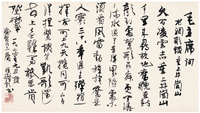 毛主席词
水调歌头 重上井冈山
久有凌云志重上井冈山
千里来寻故地旧貌变新
颜到处莺歌燕舞更有潺
潺流水高路入云端过了黄洋界险处不须看
风雷动旌旗奋是
人寰三十八年过去弹指一
挥间可上九天揽月可下五
洋捉鳖谈笑凯歌还
世上无难事只要肯登攀